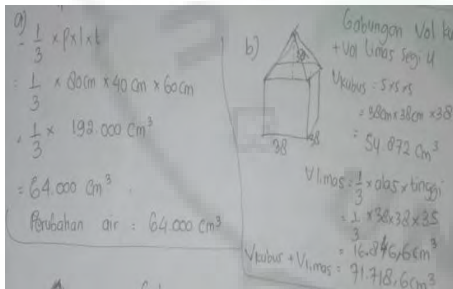 a)
- 1/3 × p × l × t
= 1/3 × 80cm × 40 cm × 60cm
= 1/3 × 192.000 cm³
= 64.000 cm³
Perubahan air = 64.000 cm³
b)
38
38
Gabungan Vol
+ Vol limas segi 4
Vkubus = s×s×s
= 38cm×38cm×38
= 54.872 cm³
Vlimas = 1/3 × alas × tinggi
= 1/3 × 38×38×35
= 16.846,6cm³
Vkubus + Vlimas = 71.718,6cm³